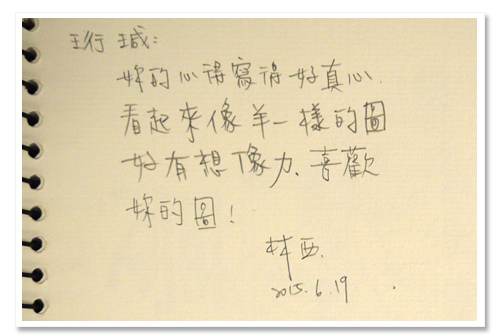 珩瑊:
妳的心得寫得好真心.
看起來像羊一樣的圖
好有想像力、喜歡
妳的圖!
林西.
2015.6.19